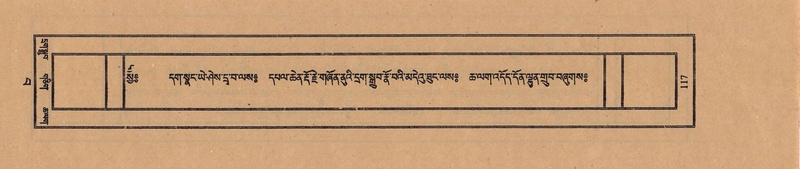 དག་སྣང་ཡེ་ཤེས་དྲ་བ་ལས༔ དཔལ་ཆེན་རྡོ་རྗེ་གཞོན་ནུའི་དྲག་སྒྲུབ་རྣོ་བའི་མདེའུ་ཐུང་ལས༔ ཆ་ལག་འདོད་དོན་ལྷུན་གྲུབ་བཞུགས༔
117